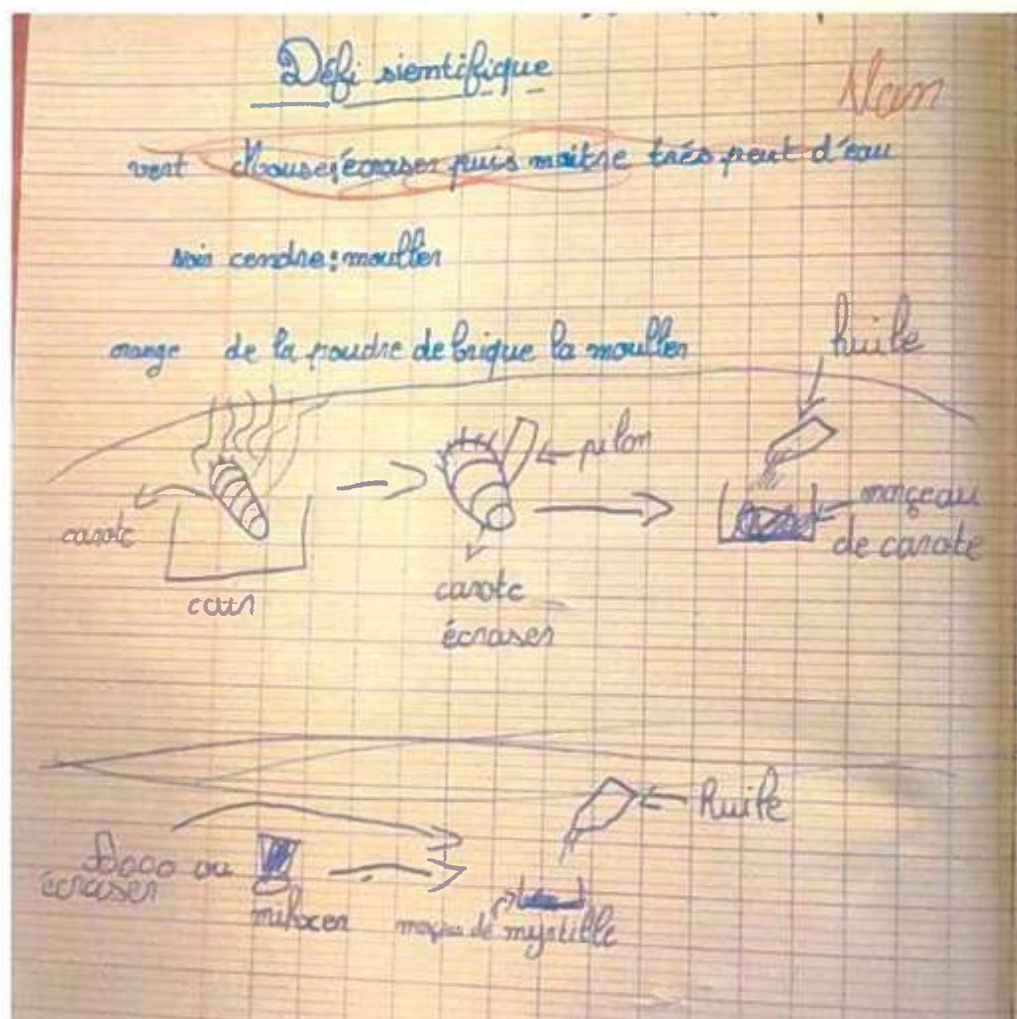 Défi sientifique
vert Mouse: écraser puis maitre très peut d'eau
noir cendre: mouller
orange de la poudre de brique la mouller
huile
pilon
carote
morçeau
de carote
cuir
carote
écraser
huile
ou
écraser
mihxer
de myrtille